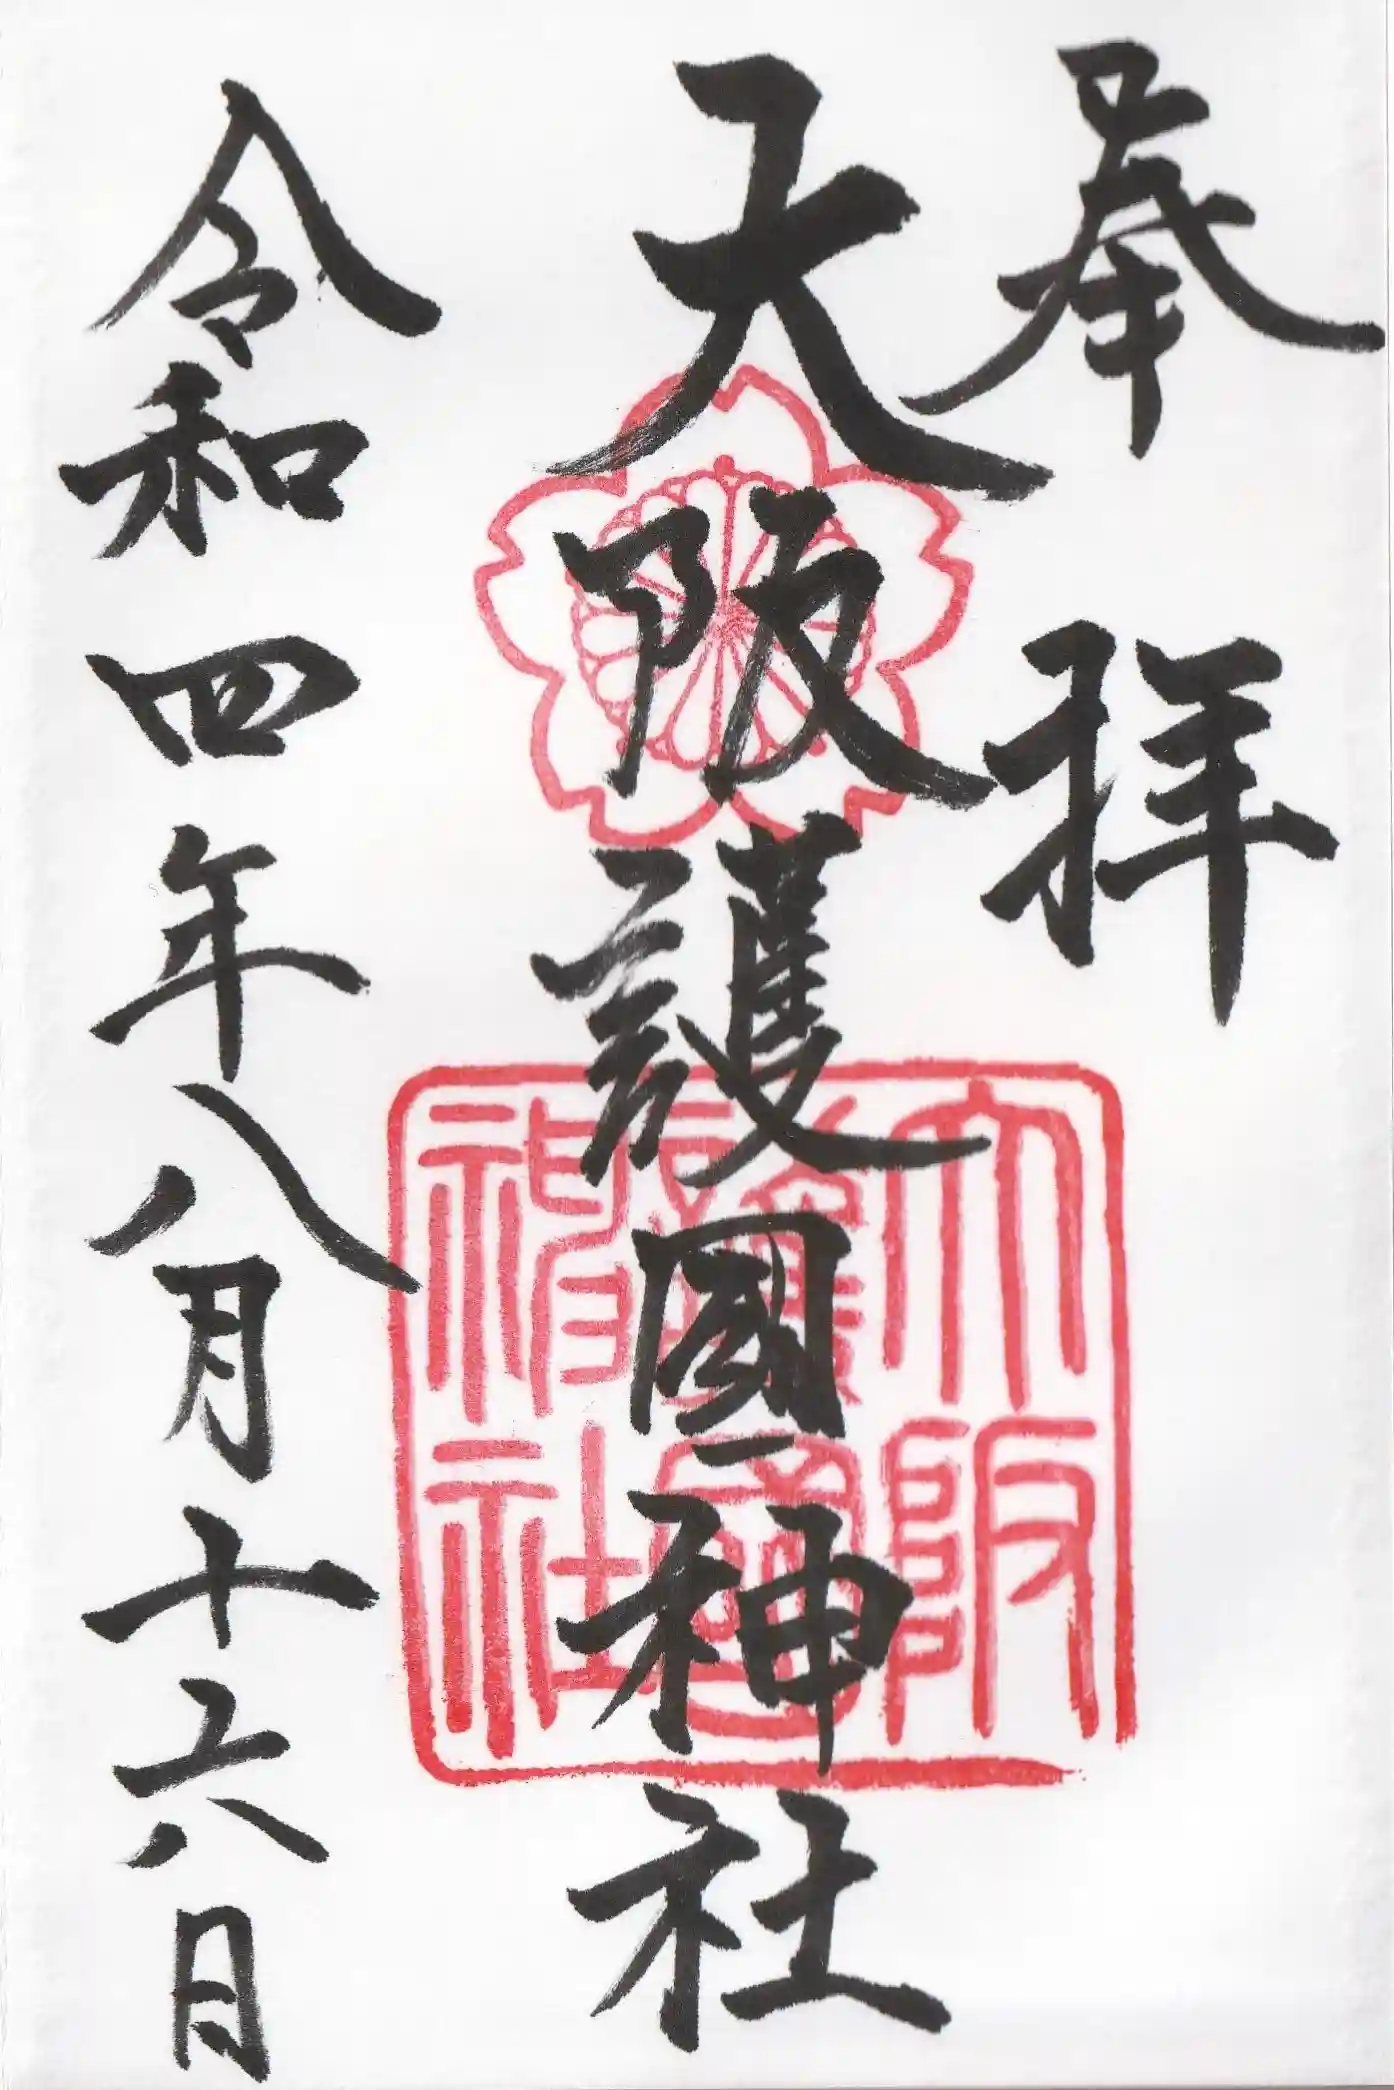 奉拝
大阪護國神社
大阪護國神社
令和四年八月十六日